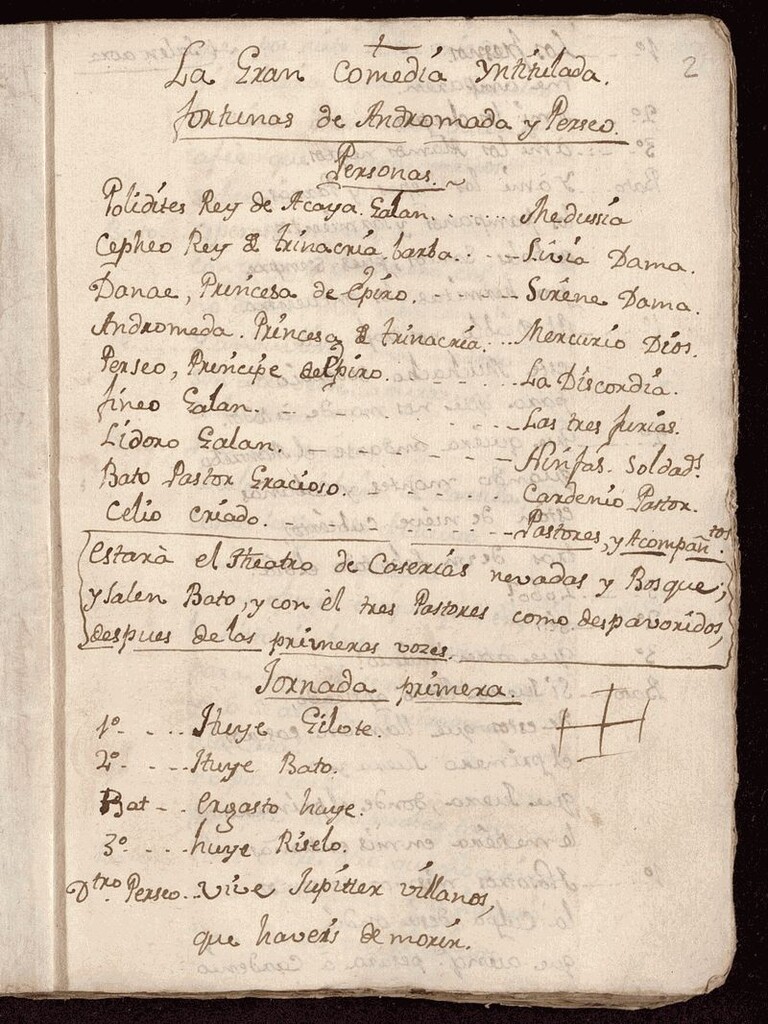 2
La Gran Comedia Yntitulada.
fortunas de Andromada y Perseo.
Personas.
Polidites Rey de Acaya. Galan. . . . . . Medussia
Cepheo Rey de trinacria, barba. . . . Livia Dama.
Danae, Princesa de Epiro. . . . . Sirene Dama.
Andromeda. Princesa de trinacria. . . . Mercurio Dios.
Perseo, Principe de Epiro. . . . . . La Discordia.
fineo Galan. . . . . . . Las tres furias.
Lidoro Galan. . . . . . Ninfas. Soldad.s
Bato Pastor Gracioso. . . . . . Cardenio Pastor.
Celio criado. . . . . . . Pastores, y Acompañ.tos
Estarà el Theatro de Caserias nevadas y Bosque;
y salen Bato, y con èl tres Pastores como despavoridos,
despues de las primeras vozes.
Jornada primera.
1º. . . . Huye Gilote.
2º. . . . Huye Bato.
Bat - . Ergasto huye.
3º . . . . huye Riselo.
Dtro. Perseo. . vive Jupiter villanos,
que haveis de morir.